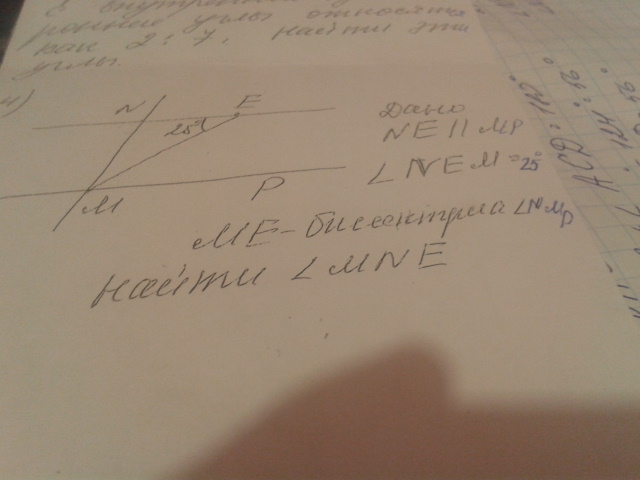 внутренние
углы относятся
как 2:7. Найти эти
углы.
4)
N E
25°
M P
Дано
NE || MP
∠NEM = 25°
ME - биссектриса ∠NMP
Найти ∠MNE
ACD = 112°